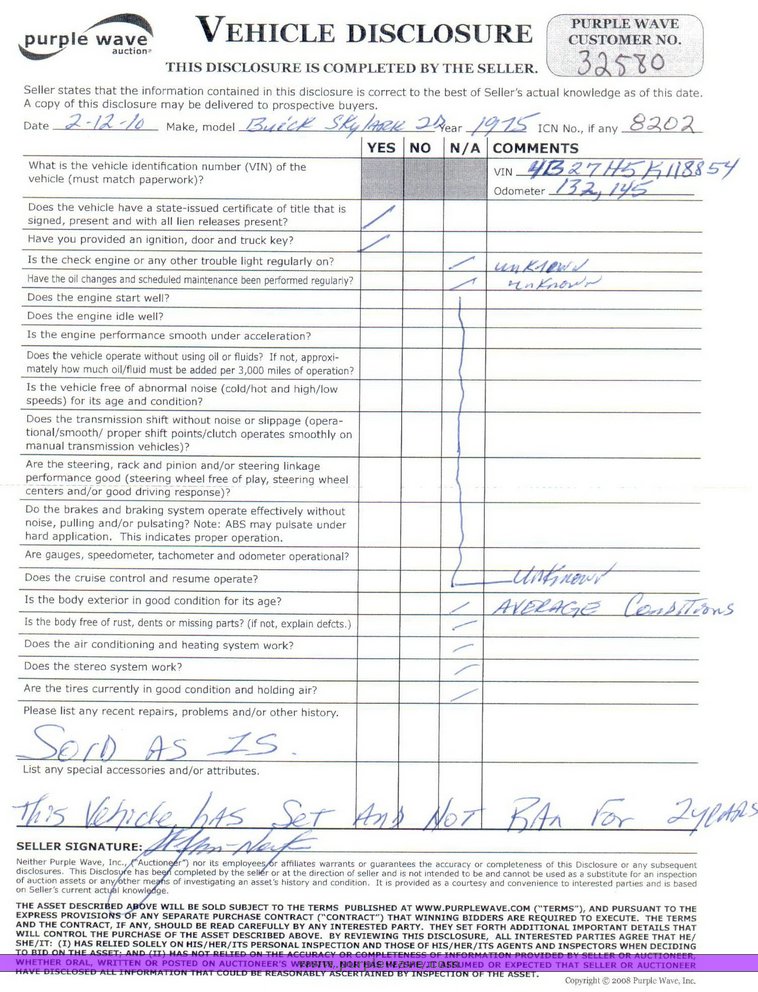 purple wave
auction®
VEHICLE DISCLOSURE
PURPLE WAVE
CUSTOMER NO.
32580
THIS DISCLOSURE IS COMPLETED BY THE SELLER.
Seller states that the information contained in this disclosure is correct to the best of Seller's actual knowledge as of this date.
A copy of this disclosure may be delivered to prospective buyers.
Date 2-12-10 Make, model Buick Skylark 2D Year 1975 ICN No., if any 8202
YES NO N/A COMMENTS
What is the vehicle identification number (VIN) of the
vehicle (must match paperwork)?
VIN 4B27H5K118854
Odometer 132,145
Does the vehicle have a state-issued certificate of title that is
signed, present and with all lien releases present?
Have you provided an ignition, door and truck key?
Is the check engine or any other trouble light regularly on? unknown
Have the oil changes and scheduled maintenance been performed regularly? unknown
Does the engine start well?
Does the engine idle well?
Is the engine performance smooth under acceleration?
Does the vehicle operate without using oil or fluids? If not, approxi-
mately how much oil/fluid must be added per 3,000 miles of operation?
Is the vehicle free of abnormal noise (cold/hot and high/low
speeds) for its age and condition?
Does the transmission shift without noise or slippage (opera-
tional/smooth/ proper shift points/clutch operates smoothly on
manual transmission vehicles)?
Are the steering, rack and pinion and/or steering linkage
performance good (steering wheel free of play, steering wheel
centers and/or good driving response)?
Do the brakes and braking system operate effectively without
noise, pulling and/or pulsating? Note: ABS may pulsate under
hard application. This indicates proper operation.
Are gauges, speedometer, tachometer and odometer operational?
Does the cruise control and resume operate? unknown
Is the body exterior in good condition for its age? AVERAGE Conditions
Is the body free of rust, dents or missing parts? (if not, explain defcts.)
Does the air conditioning and heating system work?
Does the stereo system work?
Are the tires currently in good condition and holding air?
Please list any recent repairs, problems and/or other history.
Sold AS IS.
List any special accessories and/or attributes.
This Vehicle has Set And Not Ran For 2 years
SELLER SIGNATURE:
Neither Purple Wave, Inc., ("Auctioneer") nor its employees or affiliates warrants or guarantees the accuracy or completeness of this Disclosure or any subsequent
disclosures. This Disclosure has been completed by the seller or at the direction of seller and is not intended to be and cannot be used as a substitute for an inspection
of auction assets or any other means of investigating an asset's history and condition. It is provided as a courtesy and convenience to interested parties and is based
on Seller's current actual knowledge.
THE ASSET DESCRIBED ABOVE WILL BE SOLD SUBJECT TO THE TERMS PUBLISHED AT WWW.PURPLEWAVE.COM ("TERMS"), AND PURSUANT TO THE
EXPRESS PROVISIONS OF ANY SEPARATE PURCHASE CONTRACT ("CONTRACT") THAT WINNING BIDDERS ARE REQUIRED TO EXECUTE. THE TERMS
AND THE CONTRACT, IF ANY, SHOULD BE READ CAREFULLY BY ANY INTERESTED PARTY. THEY SET FORTH ADDITIONAL IMPORTANT DETAILS THAT
WILL CONTROL THE PURCHASE OF THE ASSET DESCRIBED ABOVE. BY REVIEWING THIS DISCLOSURE, ALL INTERESTED PARTIES AGREE THAT HE/
SHE/IT: (I) HAS RELIED SOLELY ON HIS/HER/ITS PERSONAL INSPECTION AND THOSE OF HIS/HER/ITS AGENTS AND INSPECTORS WHEN DECIDING
TO BID ON THE ASSET; AND (II) HAS NOT RELIED ON THE ACCURACY OR COMPLETENESS OF INFORMATION PROVIDED BY SELLER OR AUCTIONEER,
WHETHER ORAL, WRITTEN OR POSTED ON AUCTIONEER'S WEBSITE, NOR HAS HE/SHE/IT ASSUMED OR EXPECTED THAT SELLER OR AUCTIONEER
HAVE DISCLOSED ALL INFORMATION THAT COULD BE REASONABLY ASCERTAINED BY INSPECTION OF THE ASSET.
Copyright © 2008 Purple Wave, Inc.